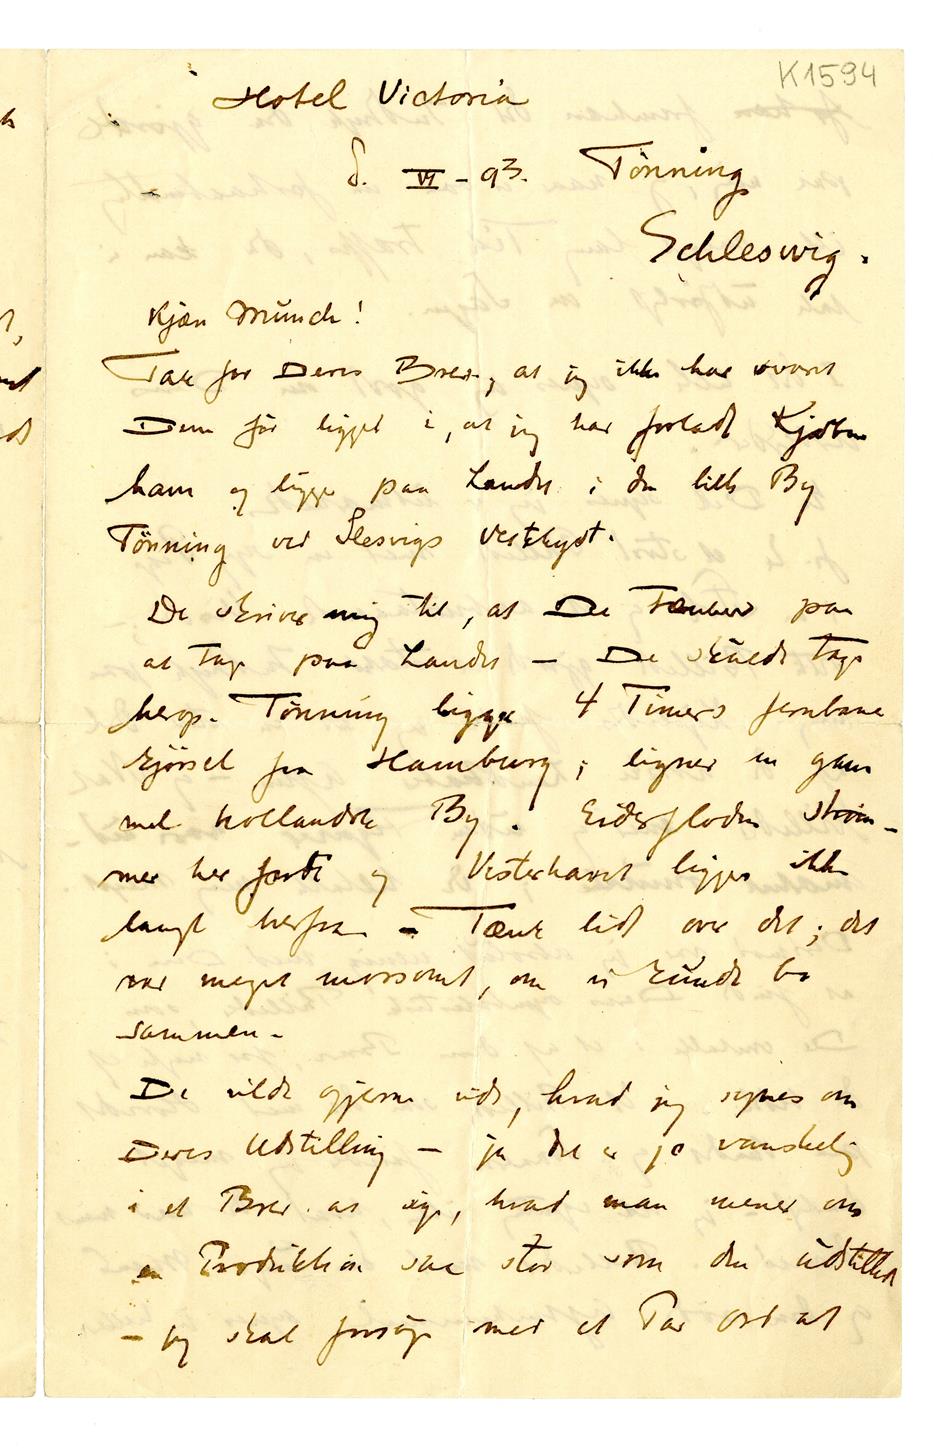 K1594
Hotel Victoria
8. VI - 93. Tönning
Schleswig.
Kjære Munch!
Tak for Deres Brev, at jeg ikke har svaret
Dem før ligger i, at jeg har forladt Kjøben
havn og ligger paa Landet i den lille By
Tönning ved Slesvigs Vestkyst.
De skriver mig til, at De tænker paa
at tage paa Landet – De skulde tage
herop. Tönning ligger 4 Timers Jernbane
kjørsel fra Hamburg, ligner en gam
mel hollandsk By. Eiderfloden strøm-
mer her forbi og Vesterhavet ligger ikke
langt herfra – Tænk lidt over det; det
var meget morsomt, om vi kunde bo
sammen.
De vilde gjerne vide, hvad jeg synes om
Deres Udstilling – ja det er jo vanskelig
i et Brev at sige, hvad man mener om
en Produktion saa stor som den udstillede
– jeg skal forsøge med et Par Ord at